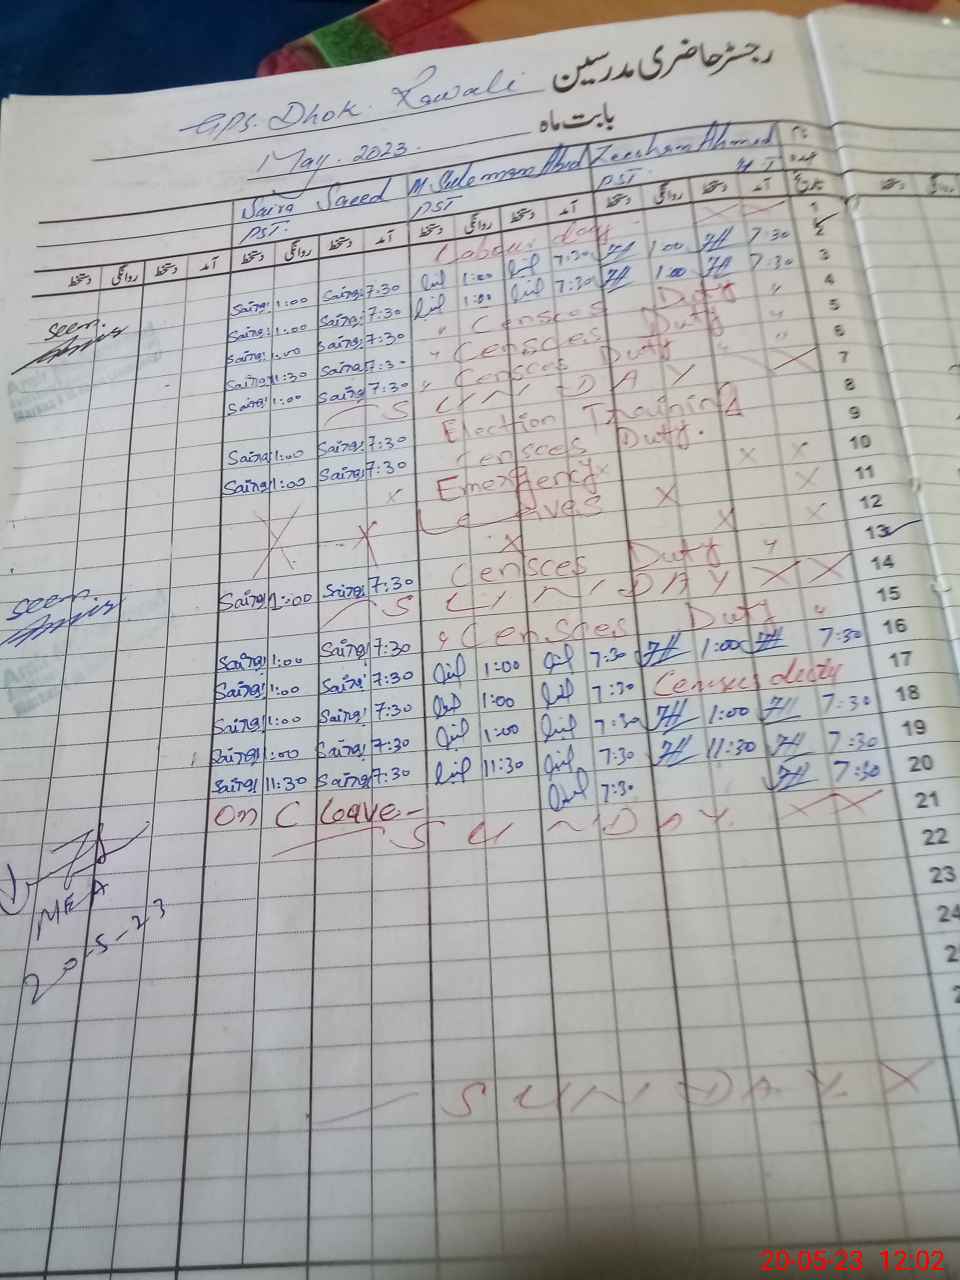 رجسٹر حاضری مدرسین
GPS. Dhok. Rawali
بابت ماہ
May. 2023.
Saira Saeed M Suleman Abid Zeeshan Ahmed نام
PST. PST PST عہدہ
دستخط روانگی دستخط آمد دستخط روانگی دستخط آمد دستخط روانگی دستخط آمد دستخط روانگی دستخط آمد تاریخ دستخط روانگی
Labour day X X 1
Saira 1:00 Saira 7:30 1:00 7:30 1:00 7:30 2
Saira 1:00 Saira 7:30 1:00 7:30 1:00 7:30 3
seen.
Saira 1:00 Saira 7:30 " Censces Duty " 4
Saira 1:30 Saira 7:30 " Censces Duty " 5
Saira 1:00 Saira 7:30 " Censces Duty " " 6
SUNDAY X 7
Saira 1:00 Saira 7:30 Election Training 8
Saira 1:00 Saira 7:30 Censces Duty. 9
X Emergency X X X 10
X X Leaves X X 11
X X X 12
Saira 1:00 Saira 7:30 Censces Duty " 13
seen.
SUNDAY X X 14
Saira 1:00 Saira 7:30 " Censces Duty " 15
Saira 1:00 Saira 7:30 1:00 7:30 1:00 7:30 16
Saira 1:00 Saira 7:30 1:00 7:30 Census duty 17
Saira 1:00 Saira 7:30 1:00 7:30 1:00 7:30 18
Saira 11:30 Saira 7:30 11:30 7:30 11:30 7:30 19
On C leave- 7:30 7:30 20
SUNDAY. X X 21
22
23
24
MEA
20-5-23
SUNDAY X
20-05-23 12:02